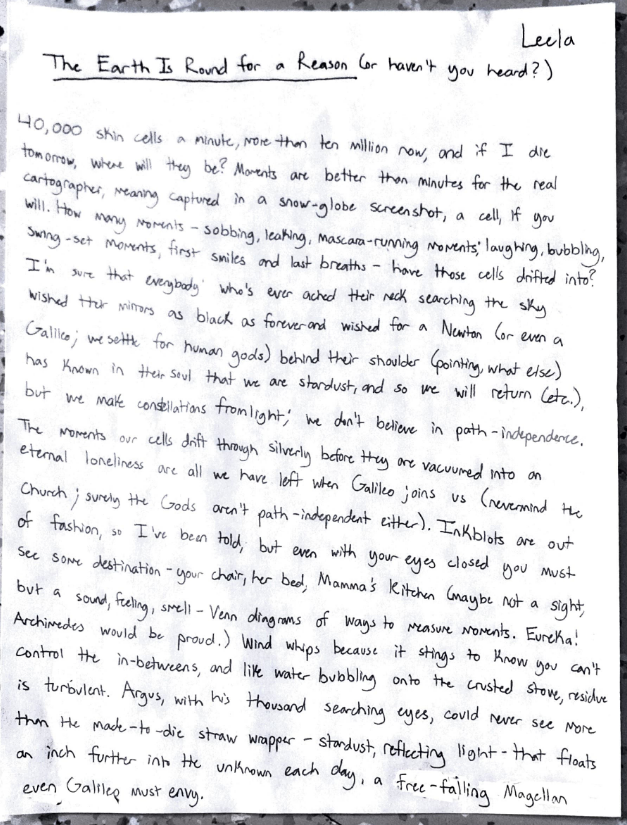 Leela
The Earth Is Round for a Reason (or haven't you heard?)
40,000 skin cells a minute, more than ten million now, and if I die
tomorrow, where will they be? Moments are better than minutes for the real
cartographer, meaning captured in a snow-globe screenshot, a cell, if you
will. How many moments - sobbing, leaking, mascara-running moments; laughing, bubbling,
swing-set moments, first smiles and last breaths - have those cells drifted into?
I'm sure that everybody who's ever ached their neck searching the sky
wished their mirrors as black as forever and wished for a Newton (or even a
Galileo; we settle for human gods) behind their shoulder (pointing, what else)
has known in their soul that we are stardust, and so we will return (etc.),
but we make constellations from light; we don't believe in path-independence.
The moments our cells drift through silverly before they are vacuumed into an
eternal loneliness are all we have left when Galileo joins us (nevermind the
Church; surely the Gods aren't path-independent either). Inkblots are out
of fashion, so I've been told, but even with your eyes closed you must
see some destination - your chair, her bed, Mamma's Kitchen (maybe not a sight,
but a sound, feeling, smell - Venn diagrams of ways to measure moments. Eureka!
Archimedes would be proud.) Wind whips because it stings to know you can't
control the in-betweens, and like water bubbling onto the crusted stove, residue
is turbulent. Argus, with his thousand searching eyes, could never see more
than the made-to-die straw wrapper - stardust, reflecting light - that floats
an inch further into the unknown each day, a free-falling Magellan
even Galileo must envy.